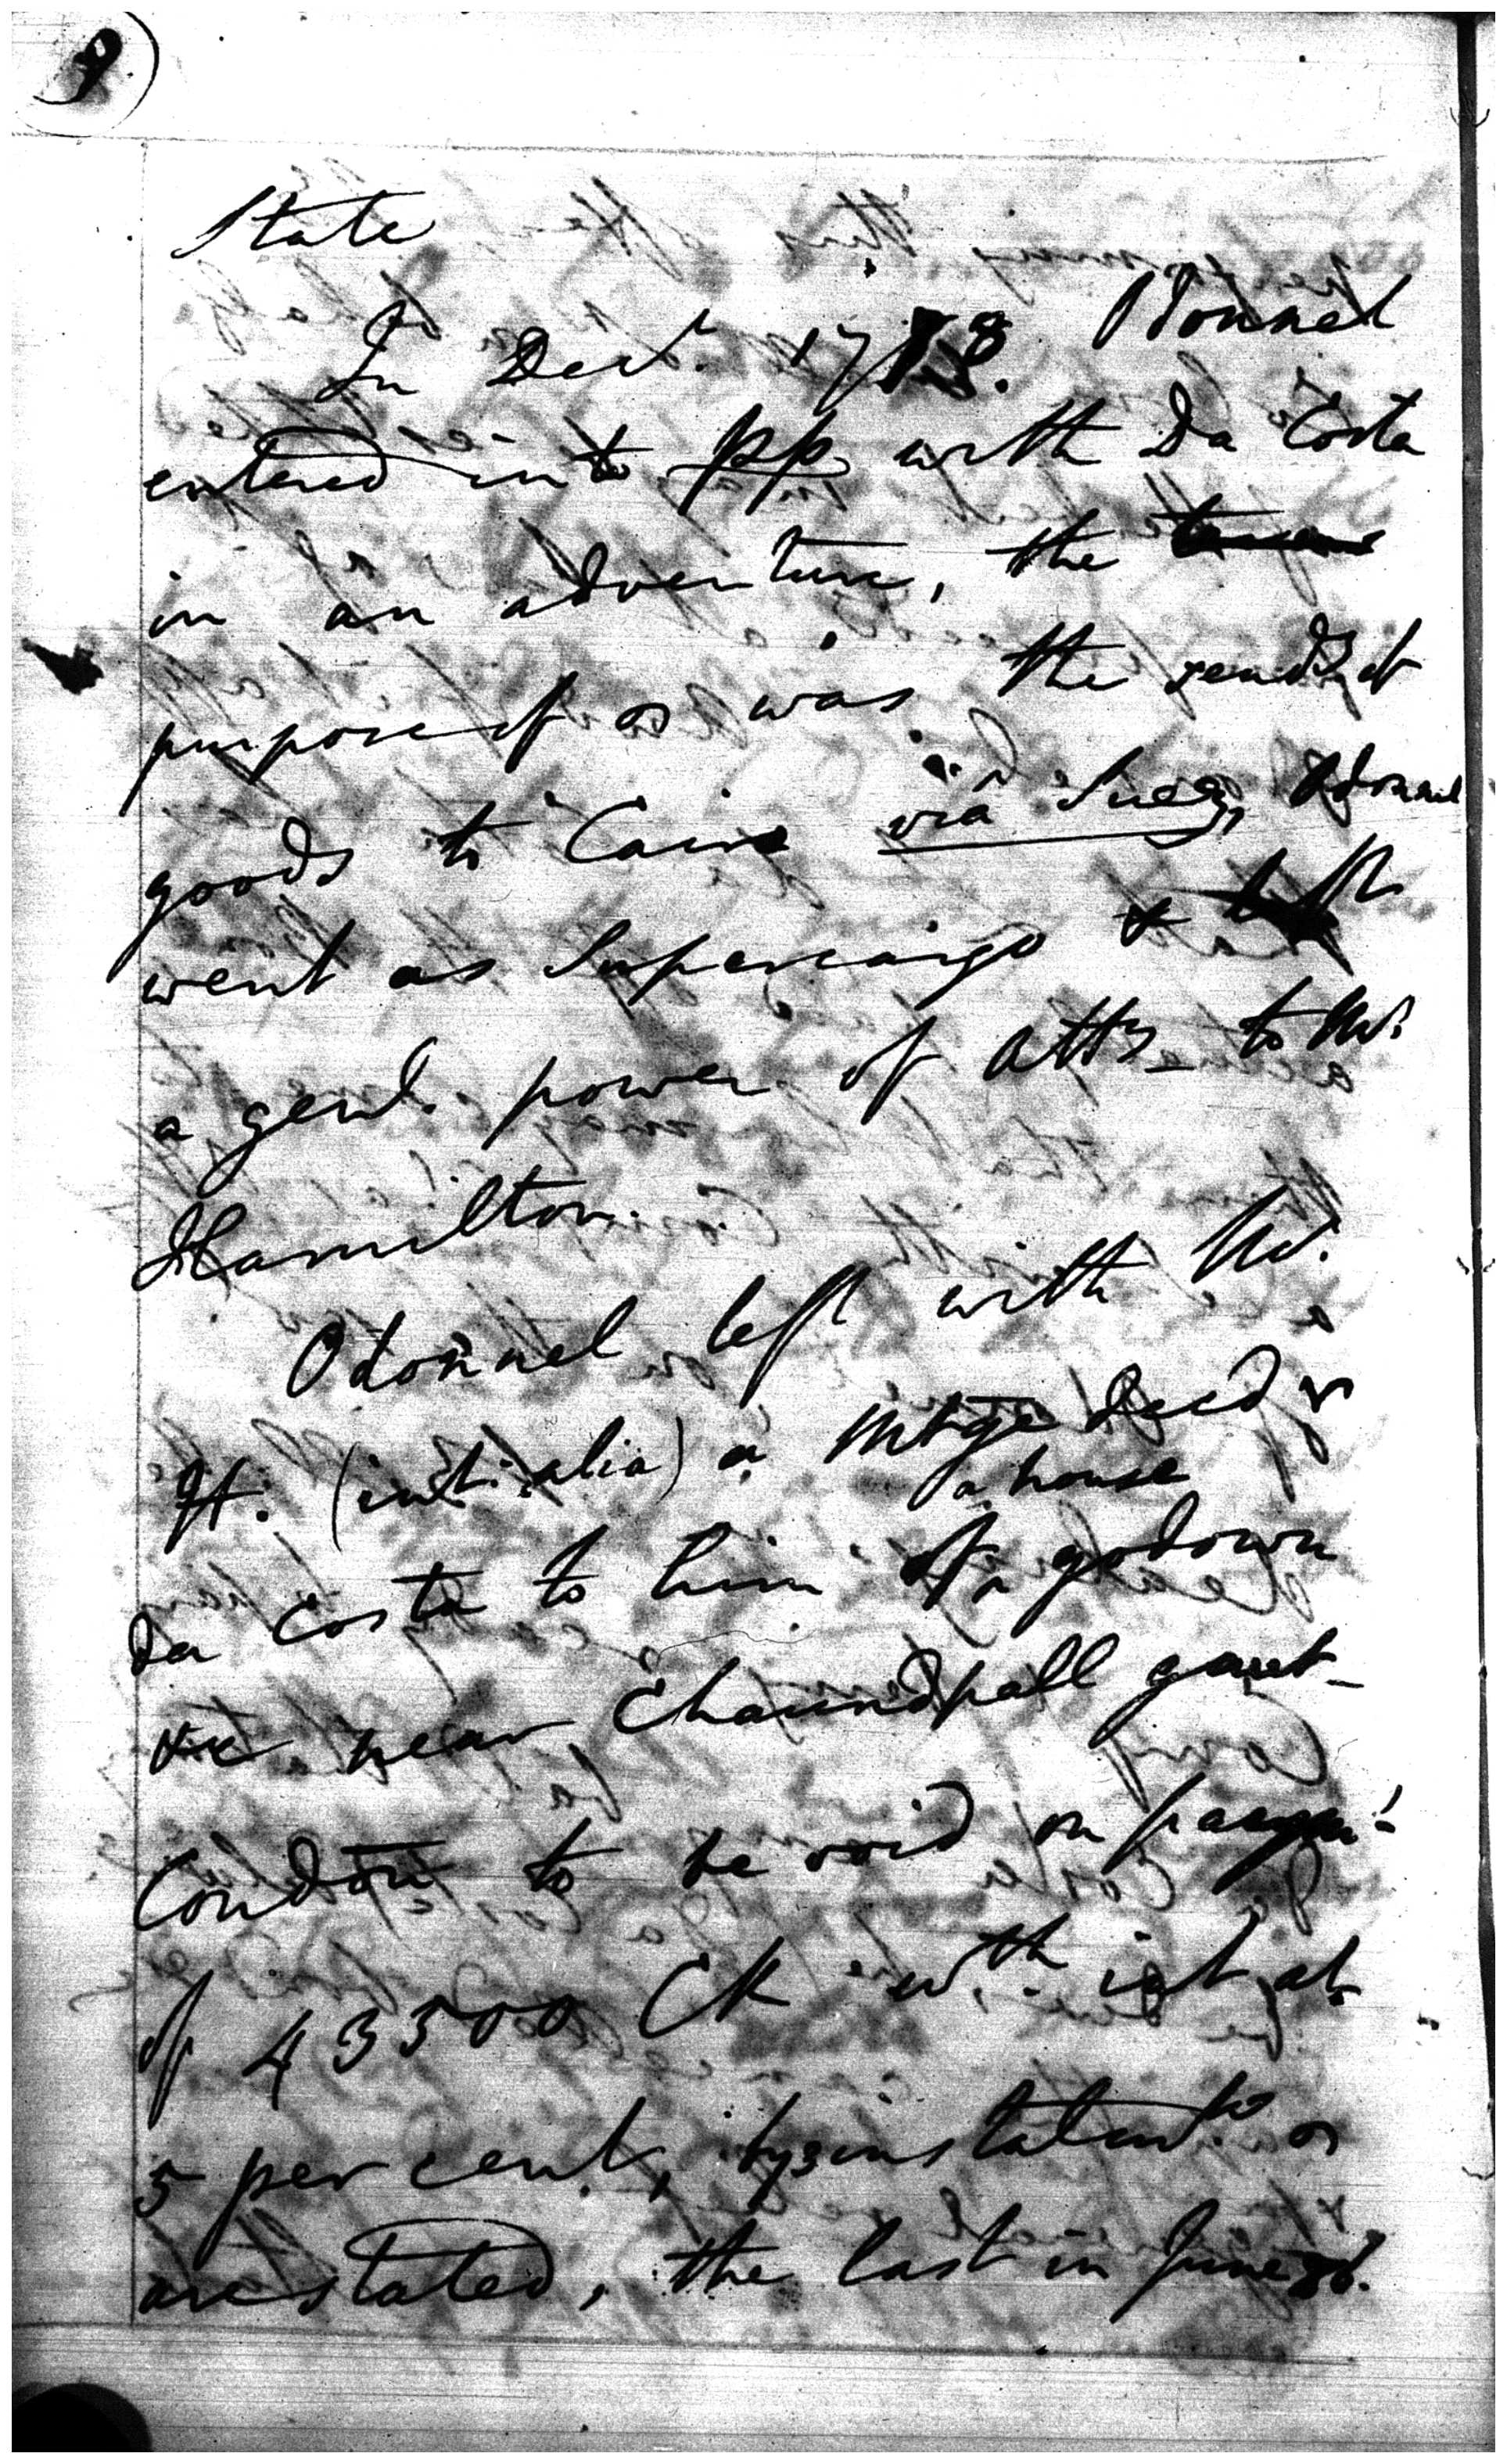 9
State
In Decr. 1778. Odonnel
entered into pp with Da Costa
in an adventure, the
purpose of was the send of
goods to Cairo via Suez, Odonnel
went as Supercargo & left
a genl. power of Atty to Mr.
Hamilton.
Odonnel left with Mr.
H. (inti. alia) a Mtge deed
a house
Da Costa to him of godown
&c near Chaundpall gaut
Condon to be void on paymt.
of 43500 CR wth. int at
5 per cent, by 3 instalmts
are stated, the last in June 80.